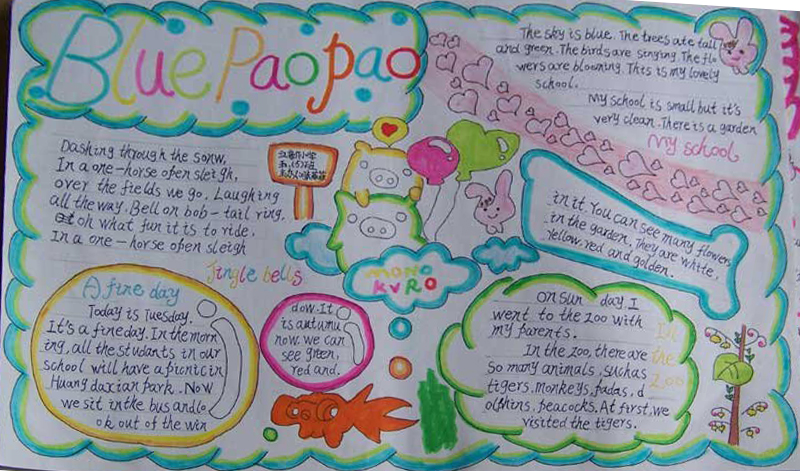 Blue Paopao
The sky is blue. The trees ate tall
and green. The birds are singing. The flo
wers are blooming. This is my lovely
school.
My school is small but it's
very clean. There is a garden
My school
in it You can see many flowers
in the garden. They are white,
Yellow, red and golden.
Dashing through the sonw,
In a one-horse open sleigh,
over the fields we go. Laughing
all the way. Bell on bob-tail ring.
oh what fun it is to ride,
In a one-horse open sleigh
Jingle bells
MONO
KVRO
A fine day
Today is Tuesday.
It's a fineday. In the morn
ing, all the studants in our
school will have a picnic in
Huang daxian Park. Now
we sit in the bus and lo
ok out of the win
dow. It
is autumu
now. we can
see green,
red and.
On sun day, I
went to the zoo with
my parents.
In the zoo, there are
so many animals, suchas
tigers, monkeys, Padas, d
olphins, peacocks. At first, we
visited the tigers.
In
the
Zoo